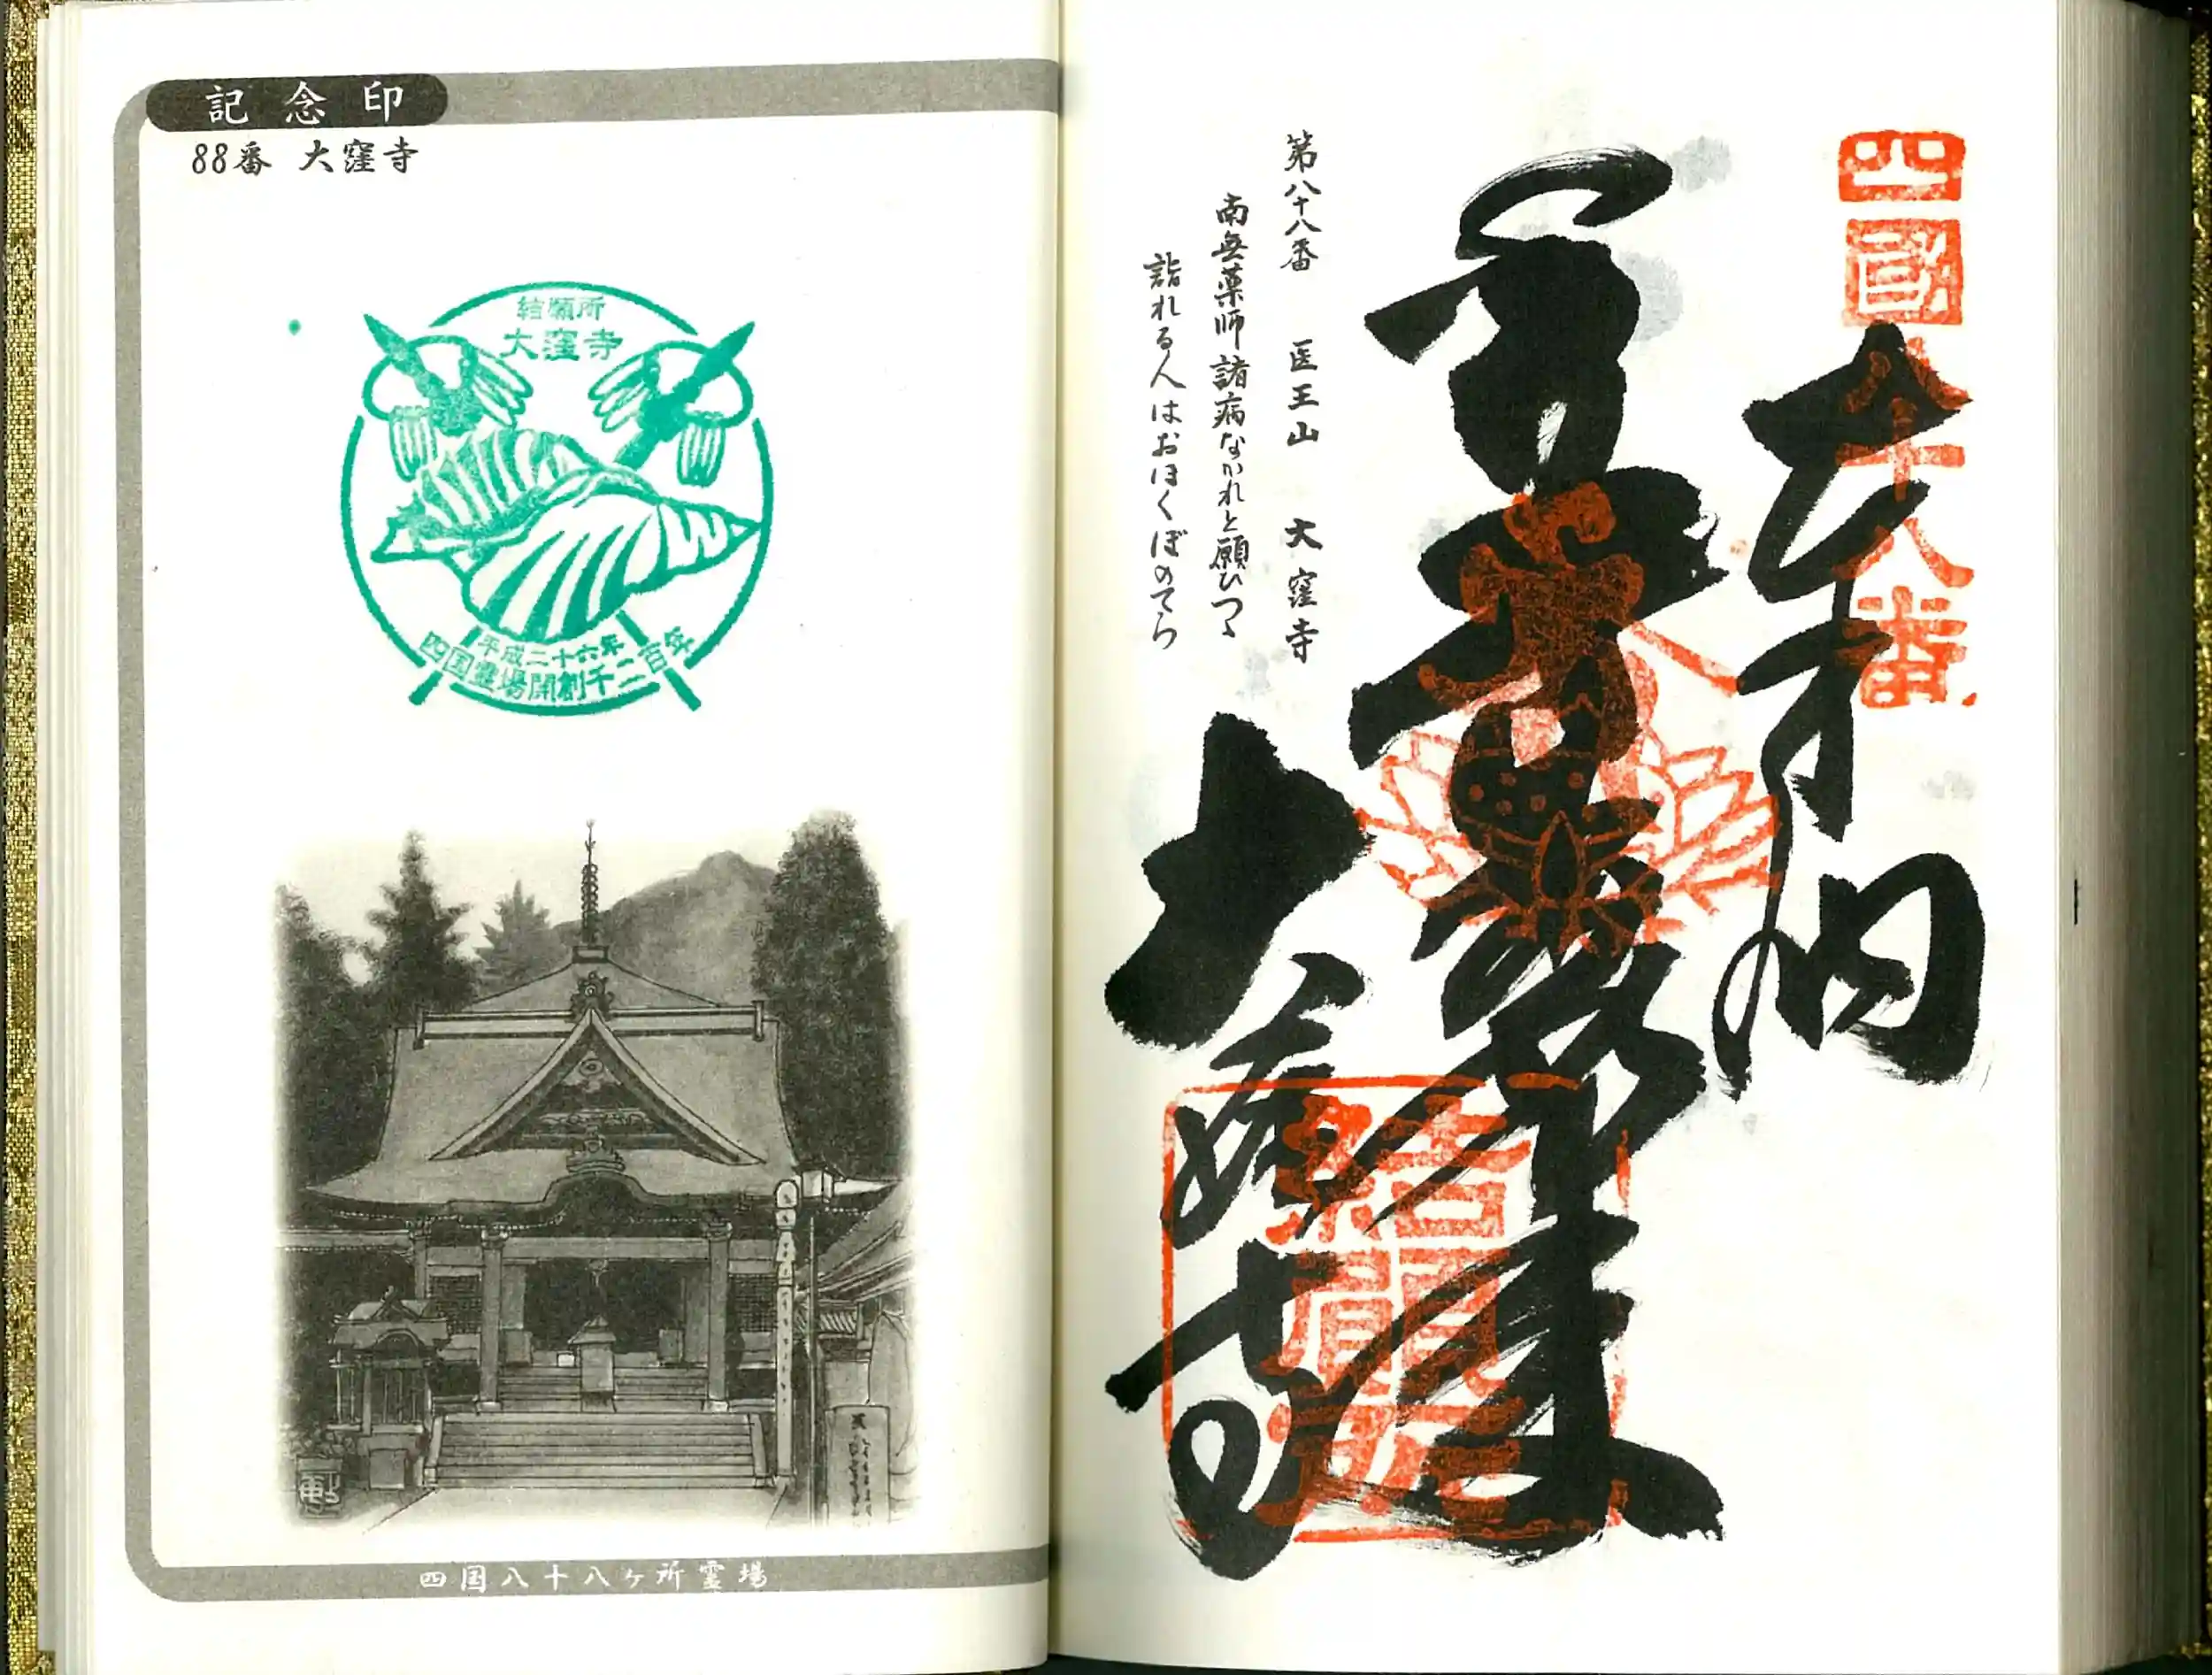 記念印
88番 大窪寺
結願所
大窪寺
平成二十六年
四国霊場開創千二百年
四国八十八ヶ所霊場
四國八十八番
奉納
大窪寺
結願所
第八十八番 医王山 大窪寺
南無薬師諸病なかれと願ひつゝ
詣れる人はおほくぼのてら